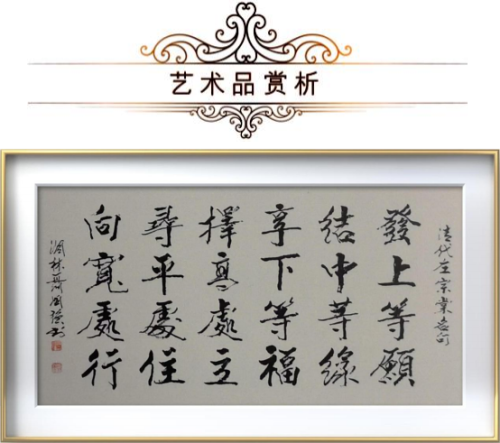 艺术品赏析
清代左宗棠名句
發上等願
結中等緣
享下等福
擇高處立
尋平處住
向寬處行